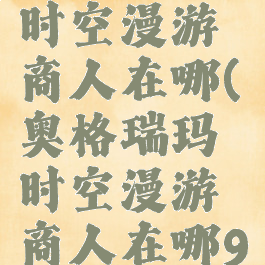 时空漫游
商人在哪(
奥格瑞玛
时空漫游
商人在哪9